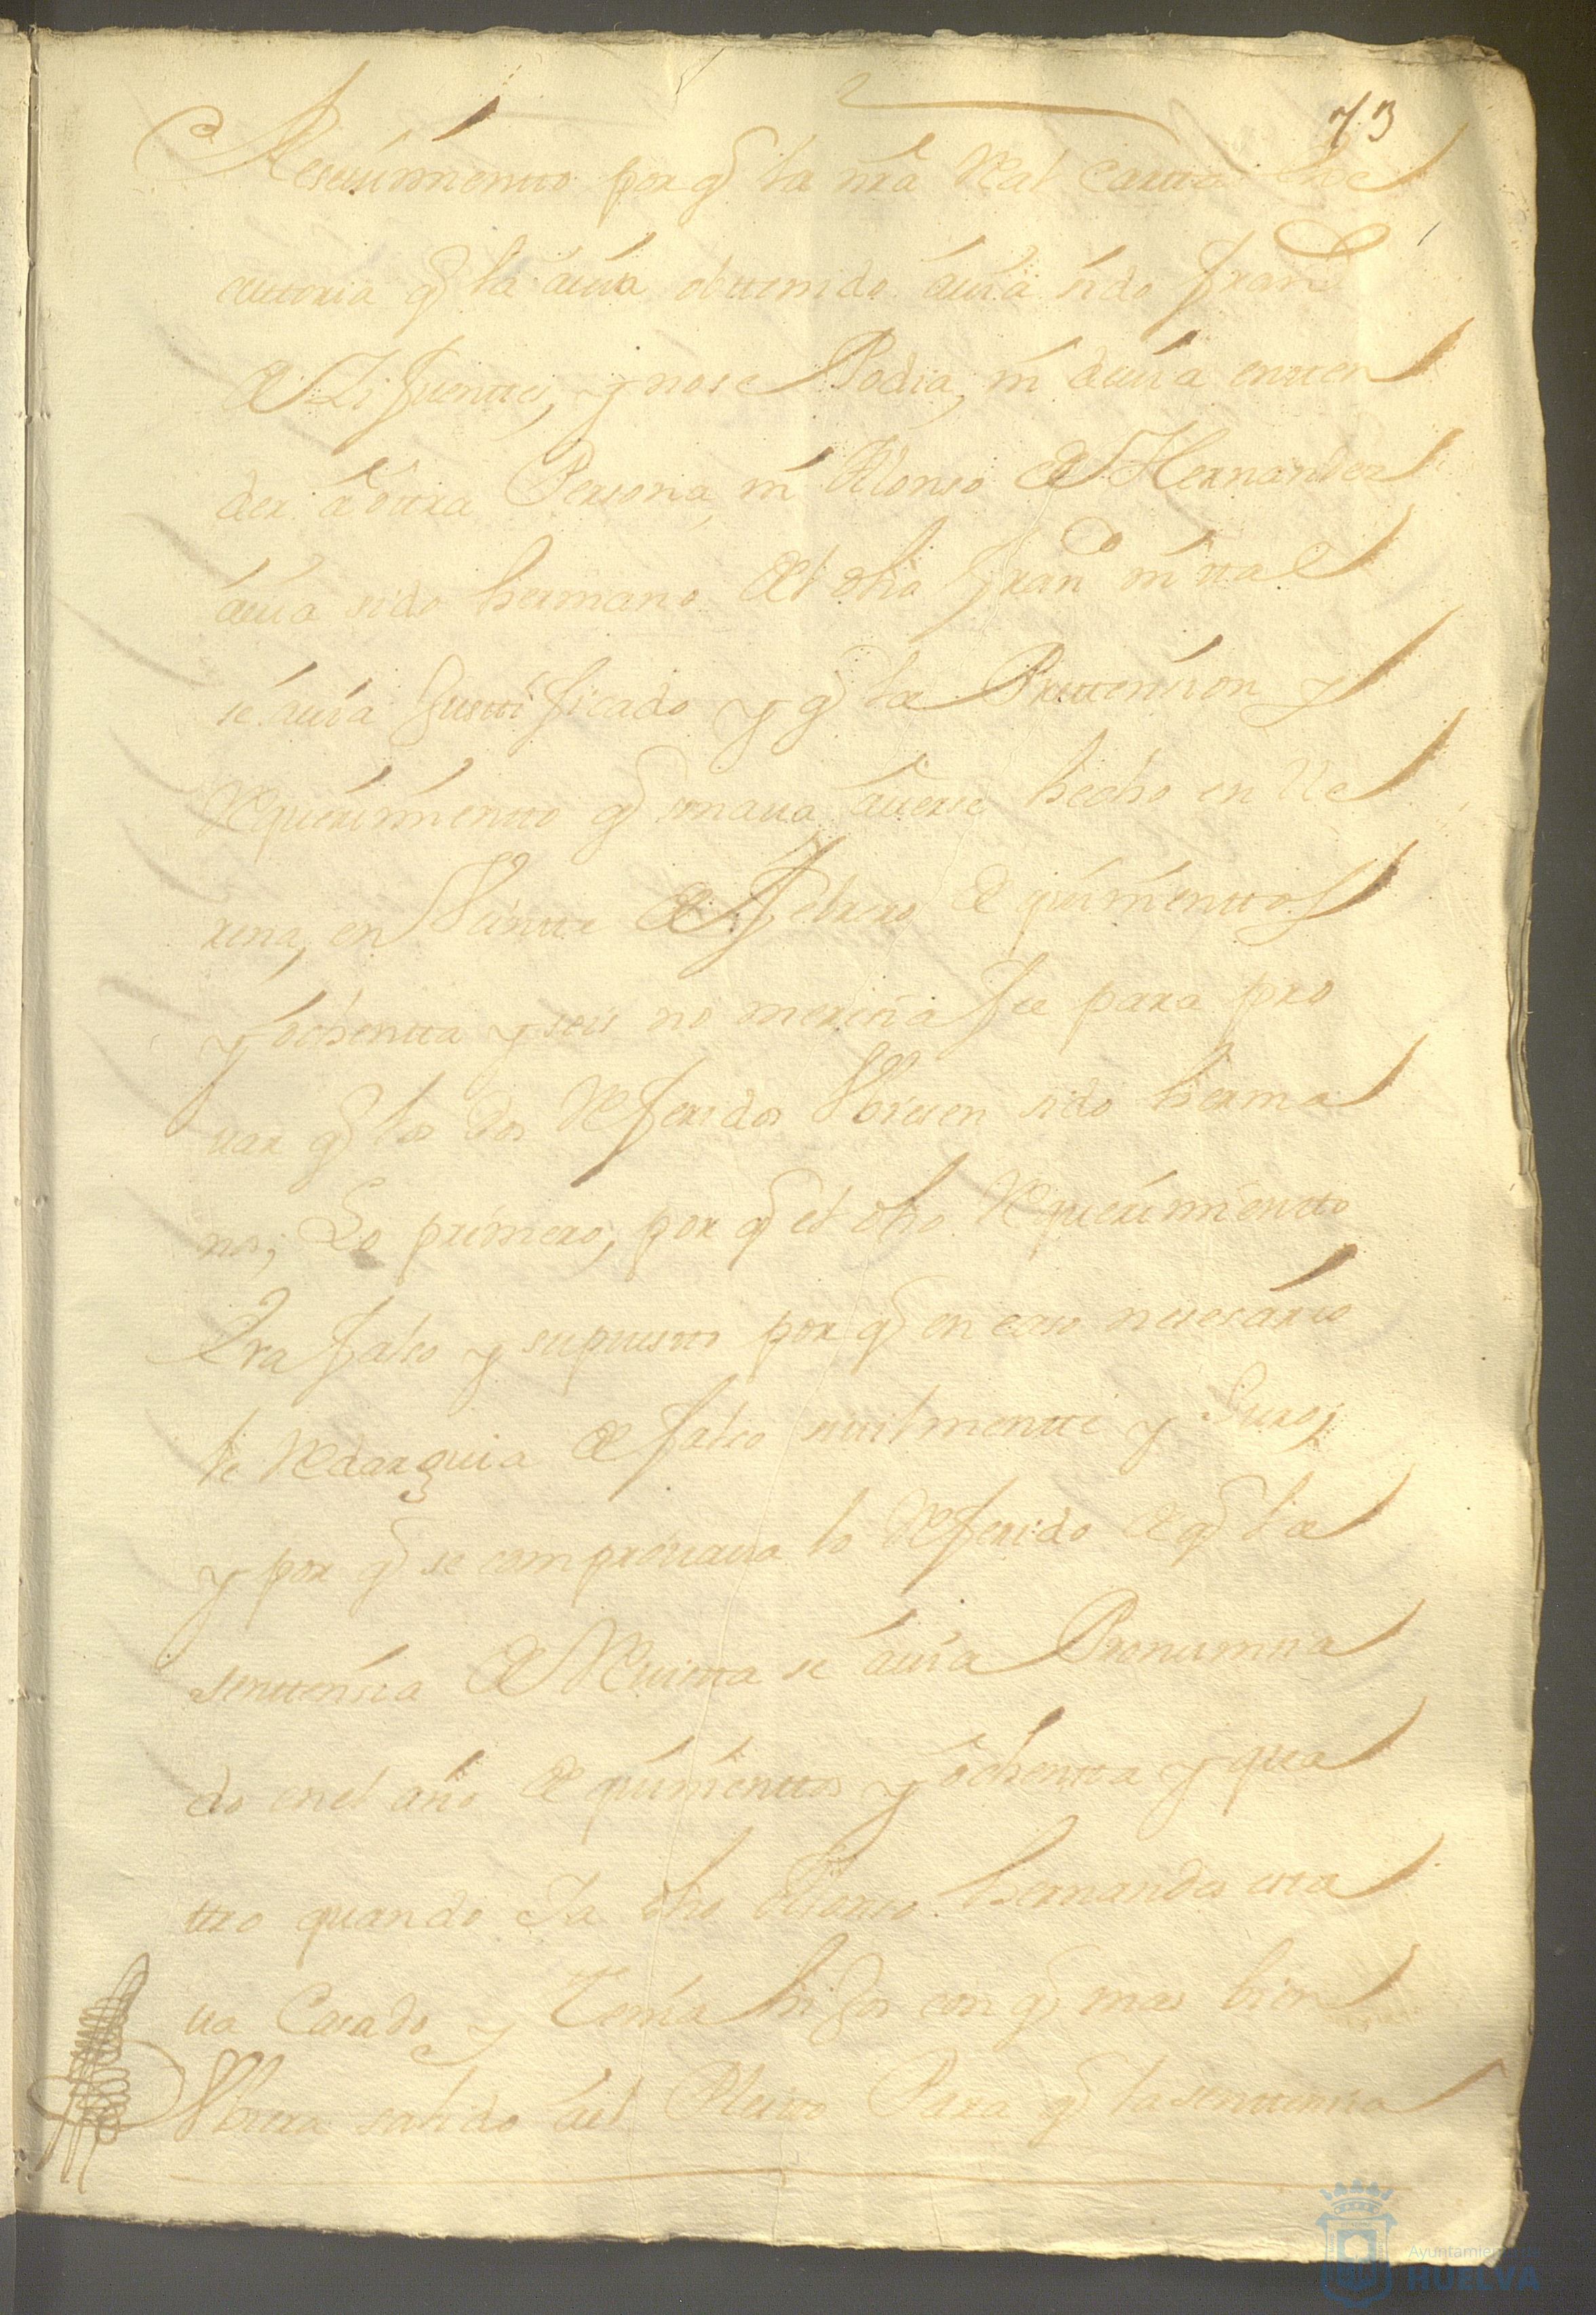 73
Resevimientto por q̃ la nrã Real Cartta Exe
cuttoria q̃ la avia obttenido avia sido Fran.co
de Zifuenttes, y nose Podia, ni devia entten
der à ôttra Persona, ni Alonso de Hernandez
avia sido hermano del dho Fran.co ni ttal
se avia Justtificado y q̃ la Prettension y
Requerimientto q̃ sonava averse hecho en Lle
rena, en Veintte de Febrero de quinienttos
y ôchentta y seis no merecia fee para pro
var q̃ los dos Referidos Vbiesen sido herma
nos, Lo primero, por q̃ el dho Requerimientto
Era falso y supuestto por q̃ en caso nesesario
le Redarguia de falso sivilmentte y Juro,
y por q̃ se comprovava lo Referido de q̃ la
senttensia de Revistta se avia Pronunsia
do en el año de quinienttos y ôchentta y qua
ttro quando Ya dho Alonso hernandes estta
va Casado y Tenia hijos con q̃ mas bien
Vbiera salido ael Pleitto Para q̃ la senttensia
Ayuntamiento de
HUELVA